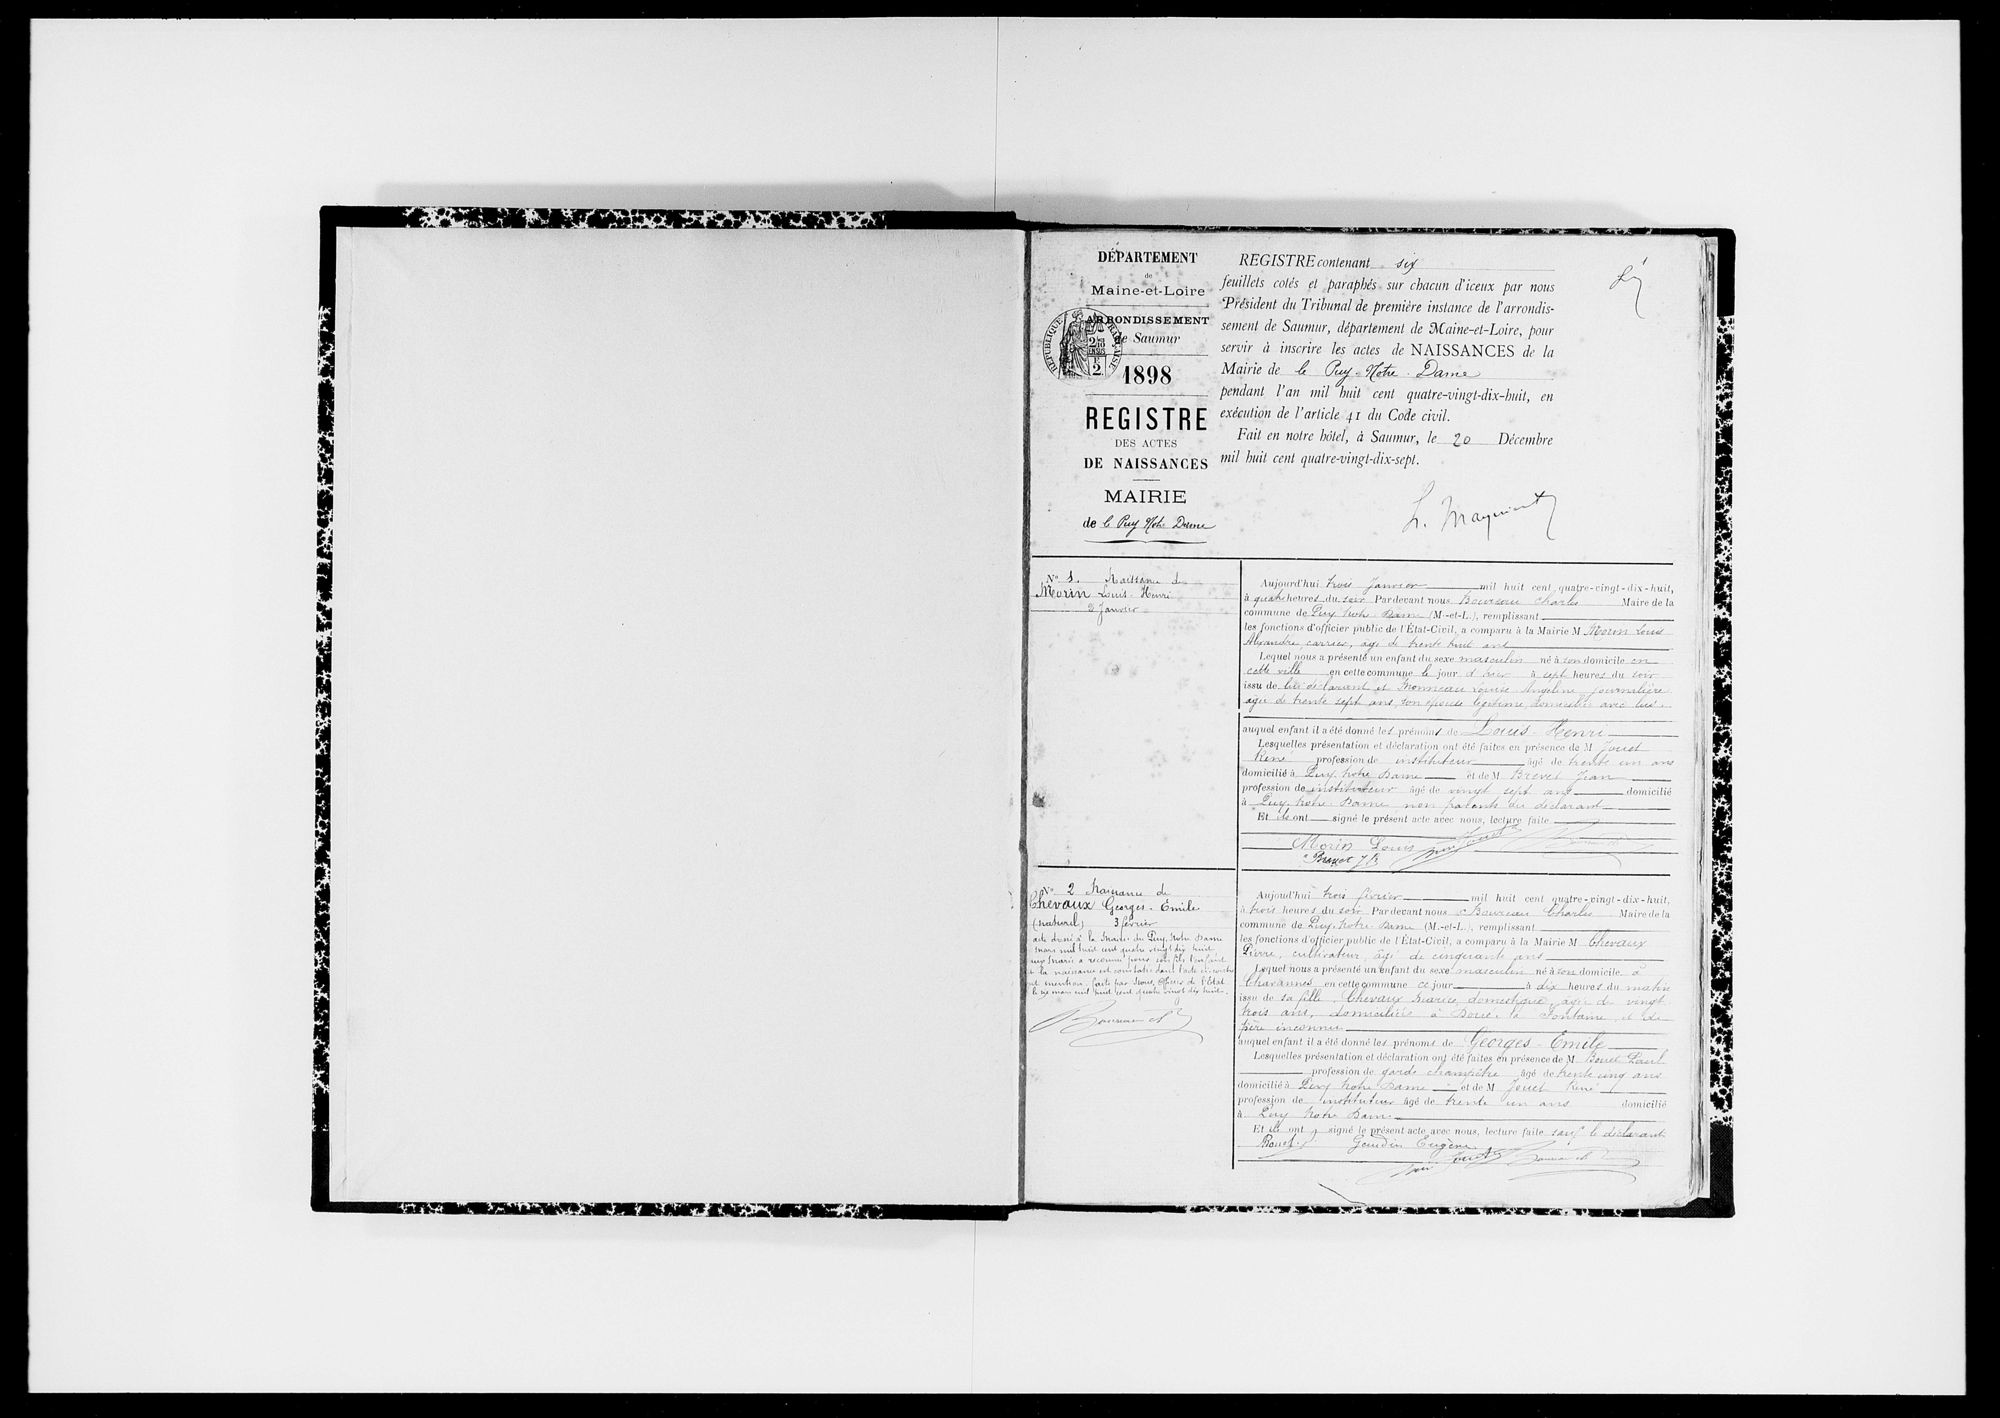 DÉPARTEMENT
de
Maine-et-Loire
ARRONDISSEMENT
de Saumur
RÉPUBLIQUE FRANÇAISE
2
1898
REGISTRE
DES ACTES
DE NAISSANCES
MAIRIE
de le Puy Notre Dame
REGISTRE contenant six
feuillets cotés et paraphés sur chacun d'iceux par nous
Président du Tribunal de première instance de l'arrondis-
sement de Saumur, département de Maine-et-Loire, pour
servir à inscrire les actes de NAISSANCES de la
Mairie de le Puy-Notre-Dame
pendant l'an mil huit cent quatre-vingt-dix-huit, en
exécution de l'article 41 du Code civil.
Fait en notre hôtel, à Saumur, le 20 Décembre
mil huit cent quatre-vingt-dix-sept.
N° 1. Naissance de
Morin Louis-Henri
2 Janvier
Aujourd'hui trois Janvier mil huit cent quatre-vingt-dix-huit,
à quatre heures du soir Pardevant nous Boureau Charles Maire de la
commune de Puy Notre Dame (M.-et-L.), remplissant
les fonctions d'officier public de l'État-Civil, a comparu à la Mairie M Morin Louis
Alexandre, carrier, âgé de trente huit ans
Lequel nous a présenté un enfant du sexe masculin né à son domicile en
cette ville en cette commune le jour d'hier à sept heures du soir
issu de lui déclarant et Monneau Louise Angéline, journalière
âgée de trente sept ans, son épouse légitime, domiciliée avec lui.
auquel enfant il a été donné les prénoms de Louis-Henri
Lesquelles présentation et déclaration ont été faites en présence de M Jouet
René profession de instituteur âgé de trente un ans
domicilié à Puy Notre Dame et de M Brevet Jean
profession de instituteur âgé de vingt sept ans domicilié
à Puy-Notre-Dame non parents du déclarant
Et ils ont signé le présent acte avec nous, lecture faite
Morin Louis
N° 2 Naissance de
Chevaux Georges-Emile
(naturel) 3 février
Aujourd'hui trois février mil huit cent quatre-vingt-dix-huit,
à trois heures du soir Pardevant nous Boureau Charles Maire de la
commune de Puy Notre-Dame (M.-et-L.), remplissant
les fonctions d'officier public de l'État-Civil, a comparu à la Mairie M Chevaux
Pierre, cultivateur, âgé de cinquante ans
Lequel nous a présenté un enfant du sexe masculin né à son domicile à
Chavannes en cette commune ce jour à dix heures du matin
issu de sa fille, Chevaux Marie, domestique, âgée de vingt
trois ans, domiciliée à Doué-la-Fontaine, et de
père inconnu
auquel enfant il a été donné les prénoms de Georges-Emile
Lesquelles présentation et déclaration ont été faites en présence de M Bouet Paul
profession de garde champêtre âgé de trente cinq ans
domicilié à Puy Notre Dame et de M Jouet René
profession de instituteur âgé de trente un ans domicilié
à Puy Notre Dame
Et ils ont signé le présent acte avec nous, lecture faite sauf le déclarant
Bouet Gaudin Eugène